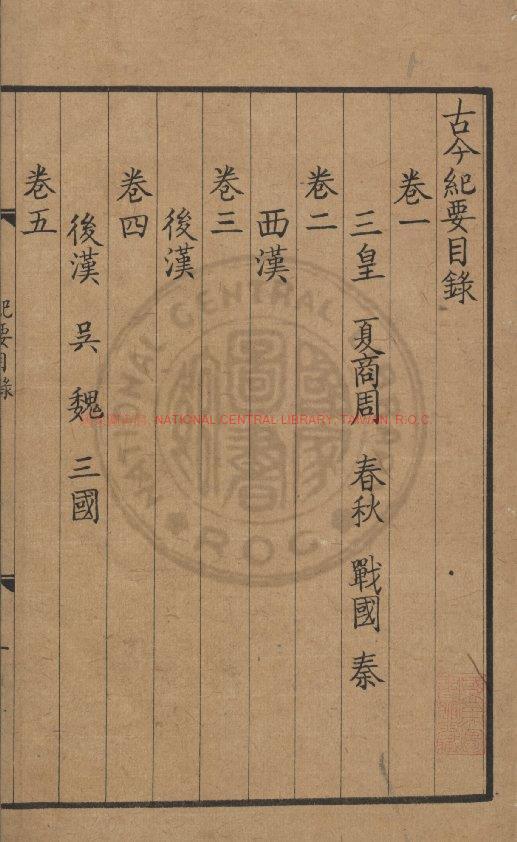 古今紀要目錄
卷一
三皇 夏商周 春秋 戰國 秦
卷二
西漢
卷三
後漢
卷四
後漢 吳 魏 三國
卷五
紀要目錄
一
NATIONAL CENTRAL LIBRARY, TAIWAN, R.O.C.